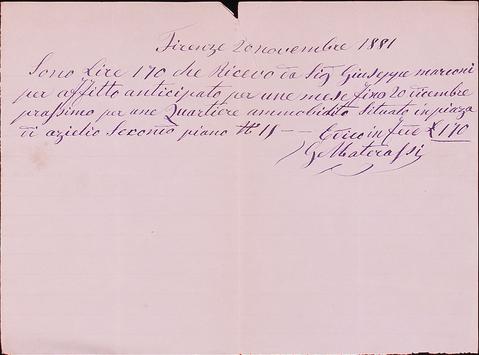 Firenze 20 novembre 1881
Sono Lire 170 che Ricevo da Sig Giuseppe marconi
per affitto anticipato per une mese fino 20 dicembre
prassimo per une Quartiere ammobidito Situato in piaza
di azielio Secondo piano N 11 — — in fede £ 170
G Materassi